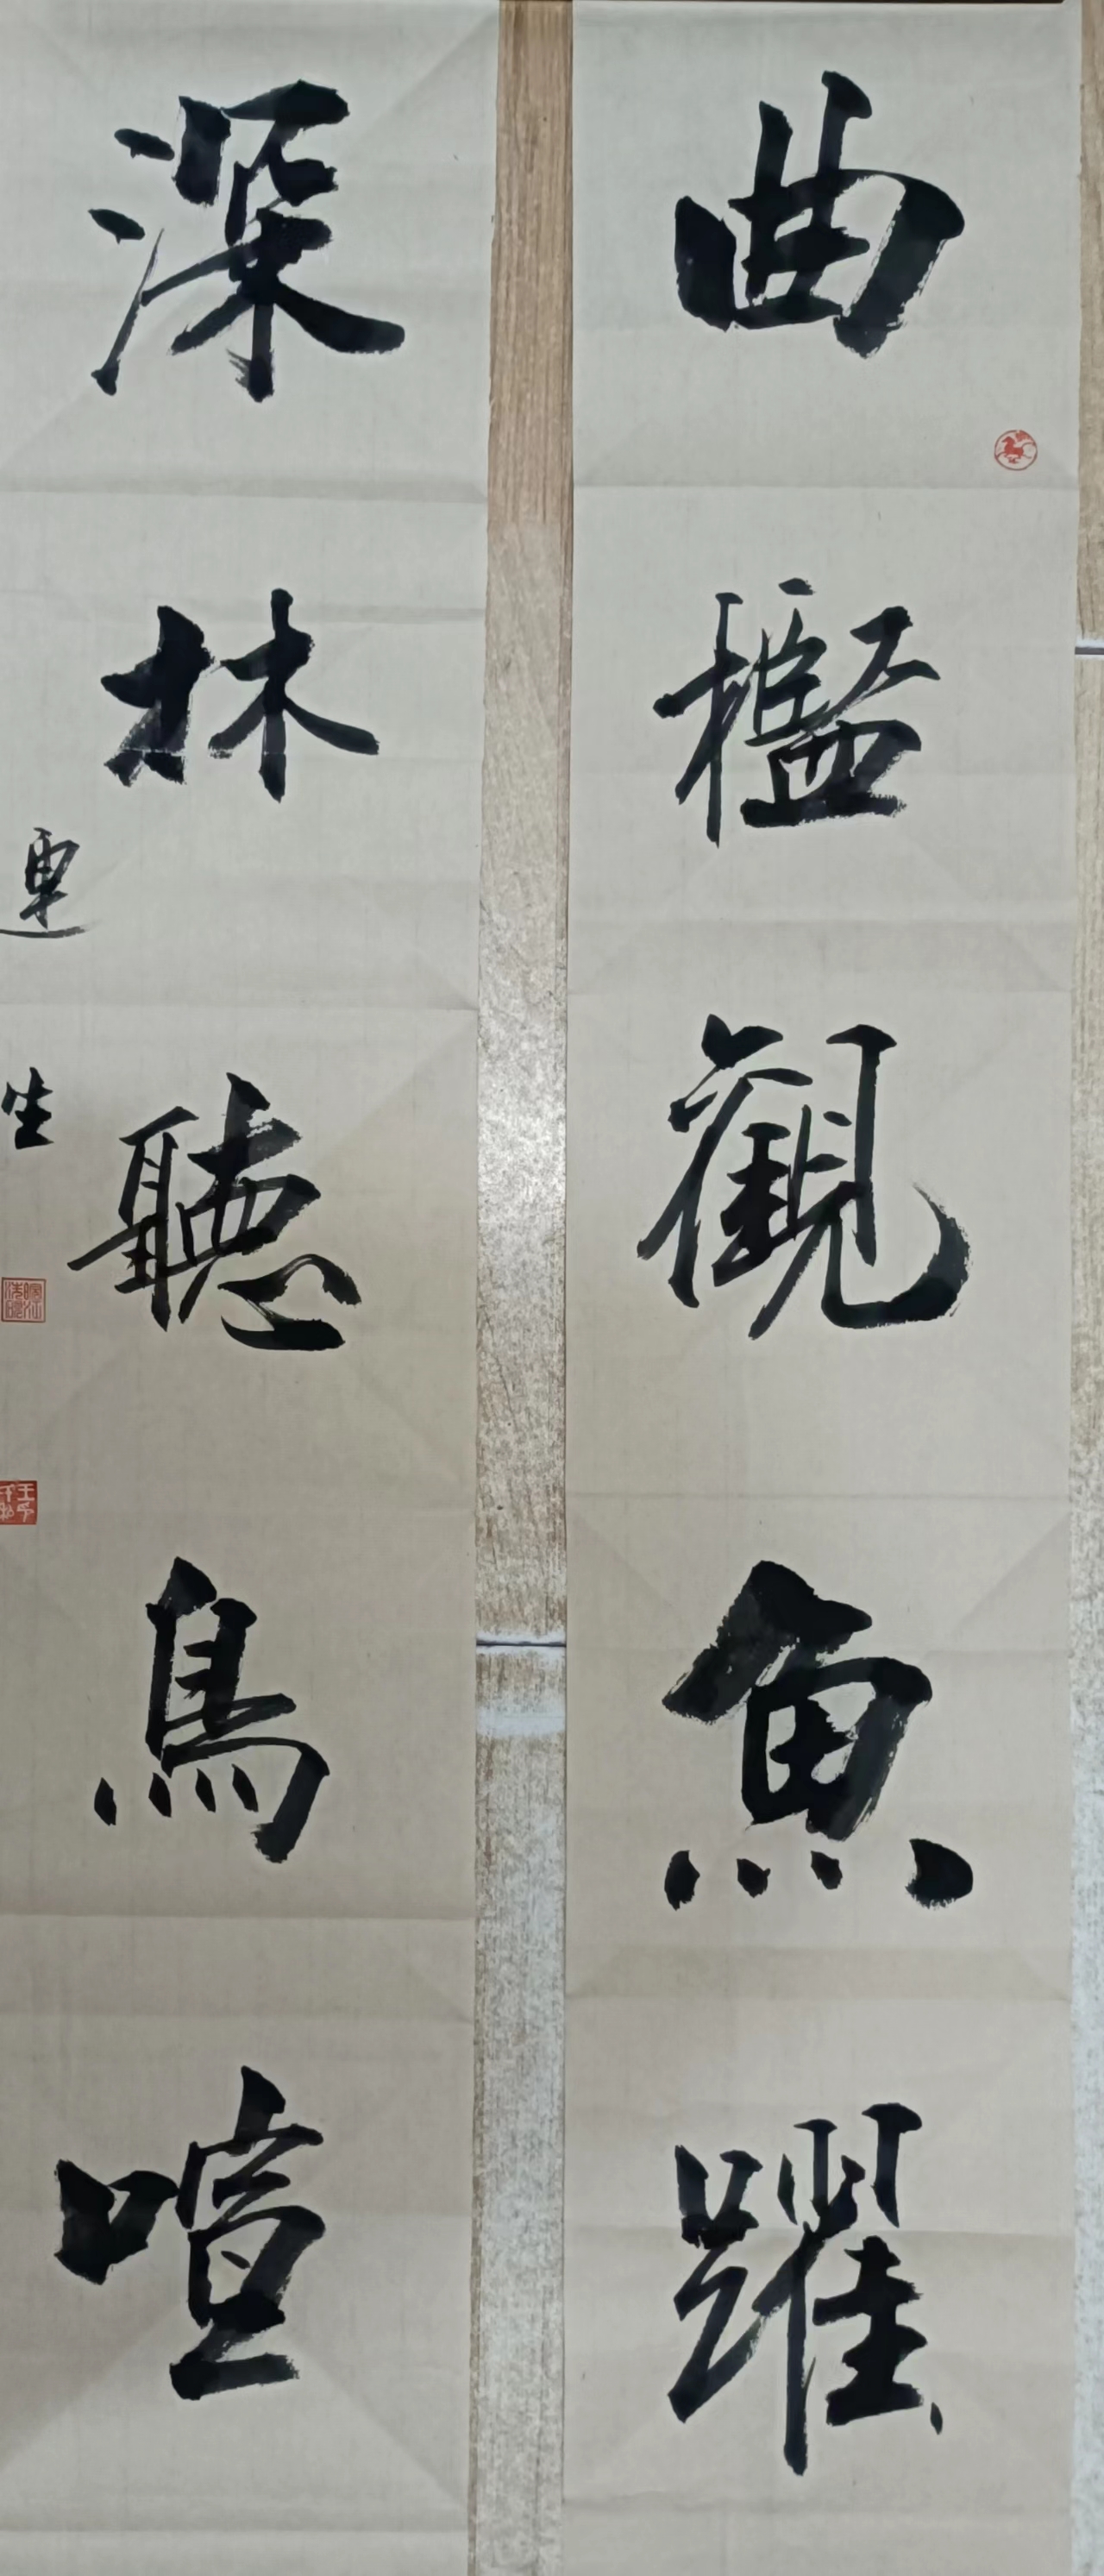 曲檻觀魚躍
深林聽鳥喧
運生